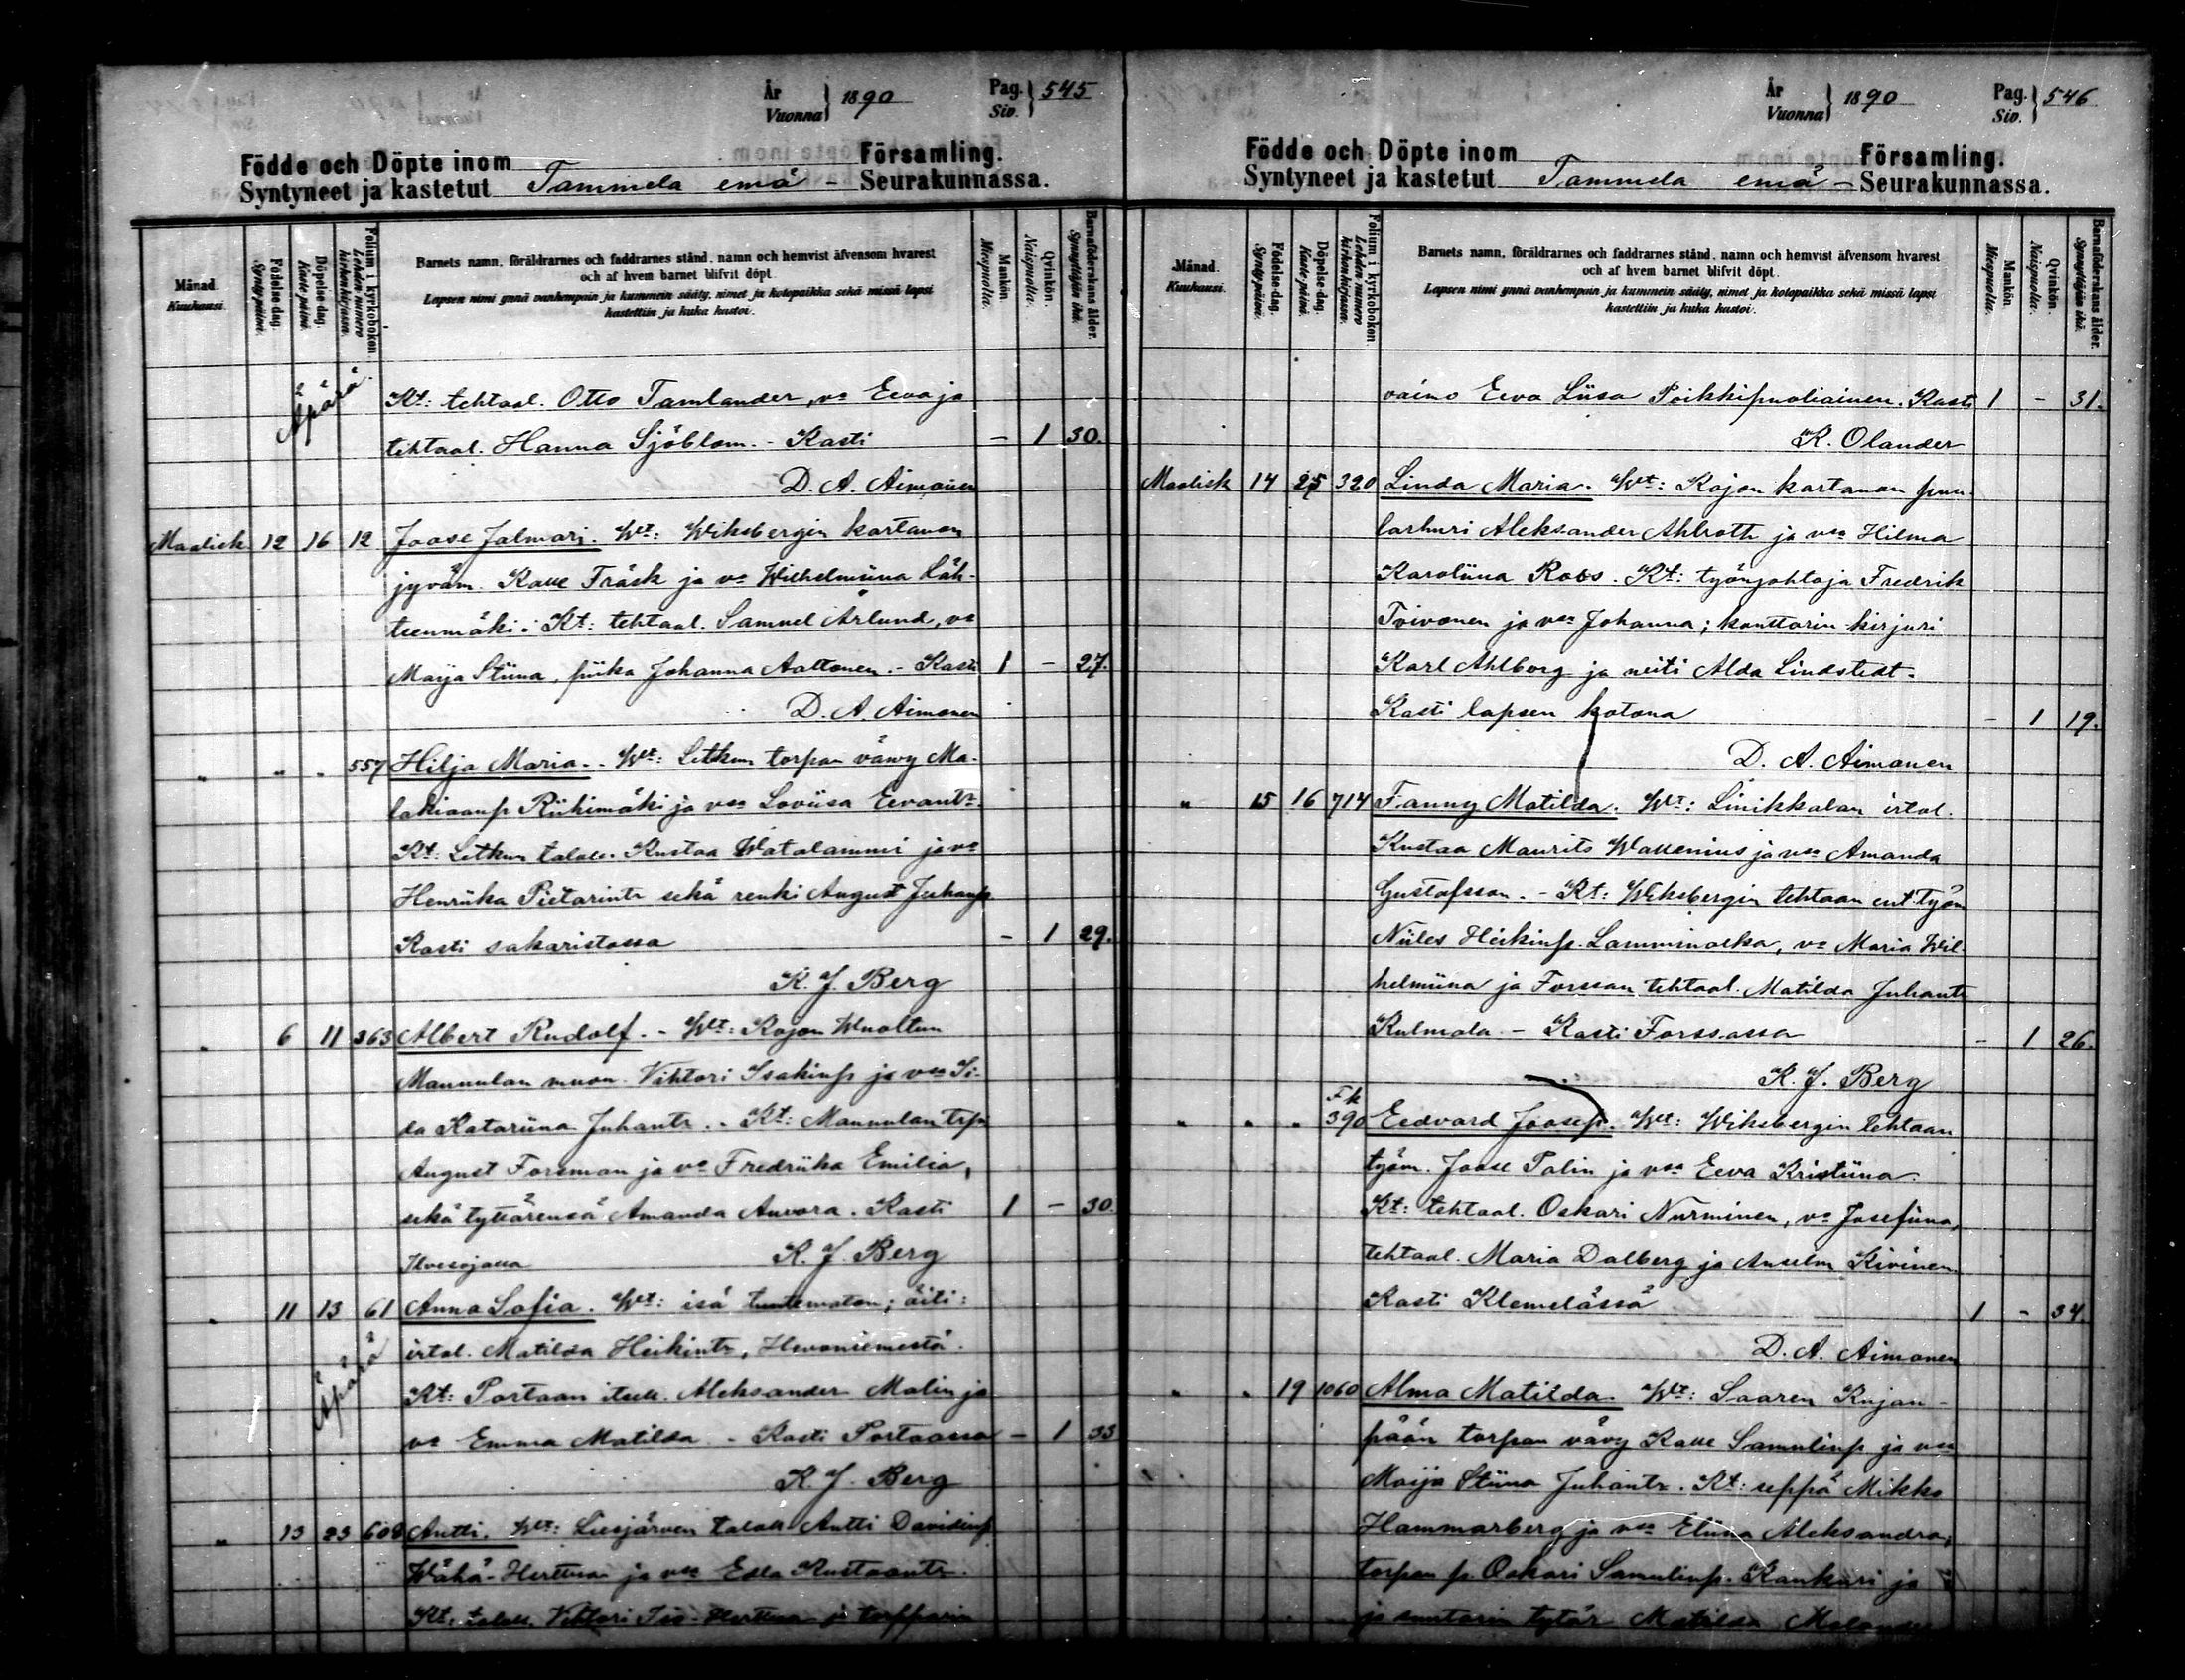 År
Vuonna } 1890
Pag.
Siv. } 545
Födde och Döpte inom Församling.
Syntyneet ja kastetut Tammela emä - Seurakunnassa.
Månad. Kuukausi.
Födelse-dag. Syntypäivä.
Döpelse-dag. Kastepäivä.
Folium i kyrkoboken. Lehden numero kirkonkirjassa.
Barnets namn, föräldrarnes och faddrarnes stånd, namn och hemvist äfvensom hvarest
och af hvem barnet blifvit döpt.
Lapsen nimi ynnä vanhempain ja kummein sääty, nimet ja kotopaikka sekä missä lapsi
kastettiin ja kuka kastoi.
Mankön. Miespuolia.
Qvinkön. Naispuolia.
Barnaföderskans ålder. Synnyttäjän ikä.
Äpärä
Kt: tehtaal. Otto Tamlander, vo Eeva ja
tehtaal. Hanna Sjöblom. - Kasti - 1 30.
D. A. Aimonen
Maalisk 12 16 12 Joose Jalmari. Wt: Wiksbergin kartanon
jyväm. Kalle Träsk ja vo Wilhelmiina Läh-
teenmäki. Kt: tehtaal. Samuel Arlund, vo
Maija Stiina, piika Johanna Aaltonen. - Kasti 1 - 27.
D. A. Aimonen
" " " 557 Hilja Maria. - Wt: Letkun torpan vävvy Ma-
lakiaanp Riihimäki ja vso Loviisa Eevantr.
Kt: Letkun talall. Kustaa Watalammi ja vo
Henriika Pietarintr sekä renki August Juhanp.
Kasti sakaristossa - 1 29.
K. J. Berg
" 6 11 363 Albert Rudolf. - Wt: Kojon Wuoltun
Mannulan muon. Vihtori Isakinp ja vso Si-
da Katariina Juhantr. - Kt: Mannulan trp
August Forsman ja vo Fredriika Emilia,
sekä tyttärensä Amanda Aurora. Kasti 1 - 30.
Ilvesojalla K. J. Berg
" 11 13 61 Anna Sofia. Wt: isä tuntematon; äiti:
Äpärä
irtol. Matilda Heikintr, Hevoniemestä.
Kt: Portaan itsell. Aleksander Malin ja
vo Emma Matilda. - Kasti Portaassa - 1 33
K. J. Berg
" 13 23 608 Antti. Wt: Liesjärven talall Antti Davidinp
Wähä-Herttua ja vso Edla Kustaantr.
Kt. talall. Vihtori Iso-Herttua ja torpparin
År
Vuonna } 1890
Pag.
Siv. } 546
Födde och Döpte inom Församling.
Syntyneet ja kastetut Tammela emä - Seurakunnassa.
Månad. Kuukausi.
Födelse-dag. Syntypäivä.
Döpelse-dag. Kastepäivä.
Folium i kyrkoboken. Lehden numero kirkonkirjassa.
Barnets namn, föräldrarnes och faddrarnes stånd, namn och hemvist äfvensom hvarest
och af hvem barnet blifvit döpt.
Lapsen nimi ynnä vanhempain ja kummein sääty, nimet ja kotopaikka sekä missä lapsi
kastettiin ja kuka kastoi.
Mankön. Miespuolia.
Qvinkön. Naispuolia.
Barnaföderskans ålder. Synnyttäjän ikä.
vaimo Eeva Liisa Poikkipuoliainen. Kasti 1 - 31.
K. Olander
Maalisk 14 25 320 Linda Maria. Wt: Kojon kartanon puu-
tarhuri Aleksander Ahlroth ja vso Hilma
Karoliina Roos. Kt: työnjohtaja Fredrik
Toivonen ja vso Johanna; konttorin kirjuri
Karl Ahlborg ja neiti Alda Lindstedt.
Kasti lapsen kotona - 1 19.
D. A. Aimonen
" 15 16 714 Fanny Matilda. Wt: Linikkalan irtol.
Kustaa Maurits Wallenius ja vso Amanda
Gustafsson. - Kt: Wiksbergin tehtaan ent. työm
Niiles Heikinp. Lamminoka, vo Maria Wil-
helmiina ja Forssan tehtaal. Matilda Juhantr
Kulmala - Kasti Forssassa - 1 26.
K. J. Berg
" " " Fk 390 Eedvard Joosep. Wt: Wiksbergin tehtaan
työm. Joose Palin ja vso Eeva Kristiina.
Kt: tehtaal. Oskari Nurminen, vo Josefiina,
tehtaal. Maria Dalberg ja Anselm Kivinen
Kasti Klemelässä 1 - 34.
D. A. Aimonen
" " 19 1060 Alma Matilda. Wt: Saaren Kujan-
pään torpan vävy Kalle Samulinp ja vso
Maija Stiina Juhantr. Kt: seppä Mikko
Hammarberg ja vso Eliina Aleksandra,
torpan p. Oskari Samulinp. Kankuri ja
ja suutarin tytär Matilda Melander